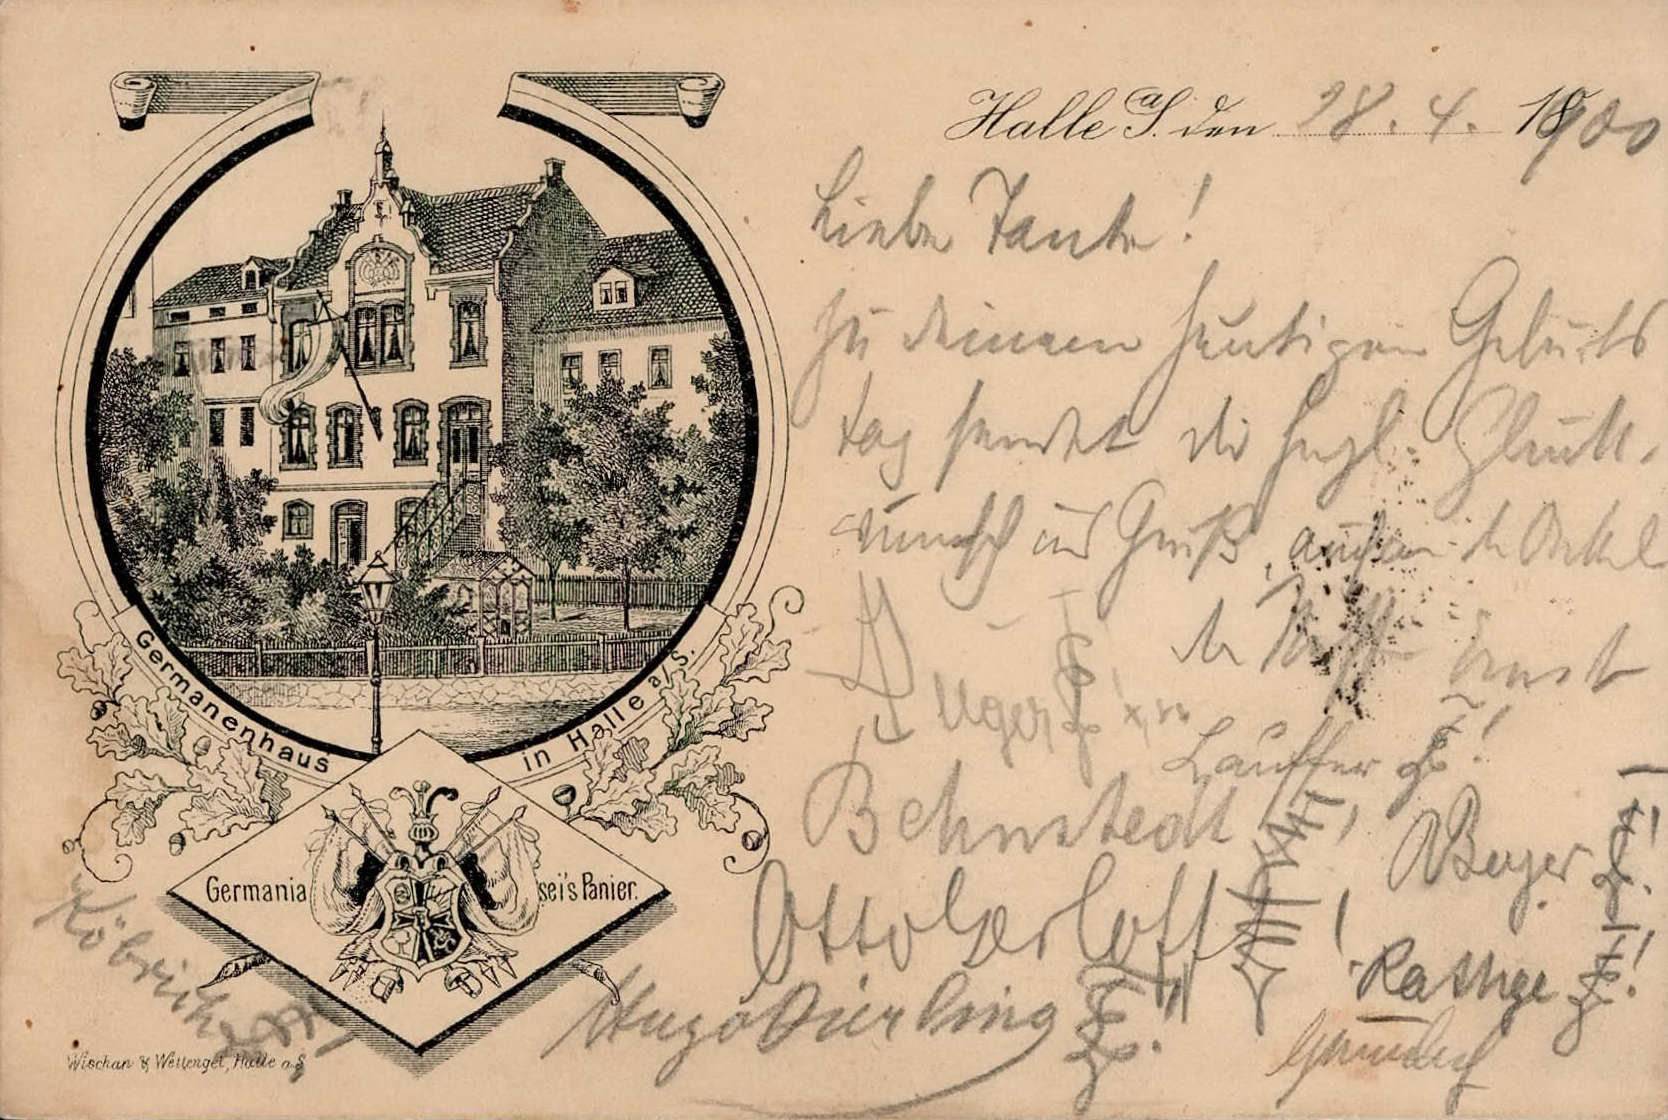 Halle a/S. den 28. 4. 1900
Liebe Tante!
Zu deinem heutigen Geburts
tag sendet die herzl. Glück-
wunsch und Gruß, auch an den Onkel
dein Neffe Ernst
Läuffer
Behnstedt
Beyer
Otto Gerloff
Rathge
Hugo Dierling
Köbrich
Germanenhaus in Halle a/S.
Germania sei's Panier.
Wischan & Wettengel, Halle a.S.